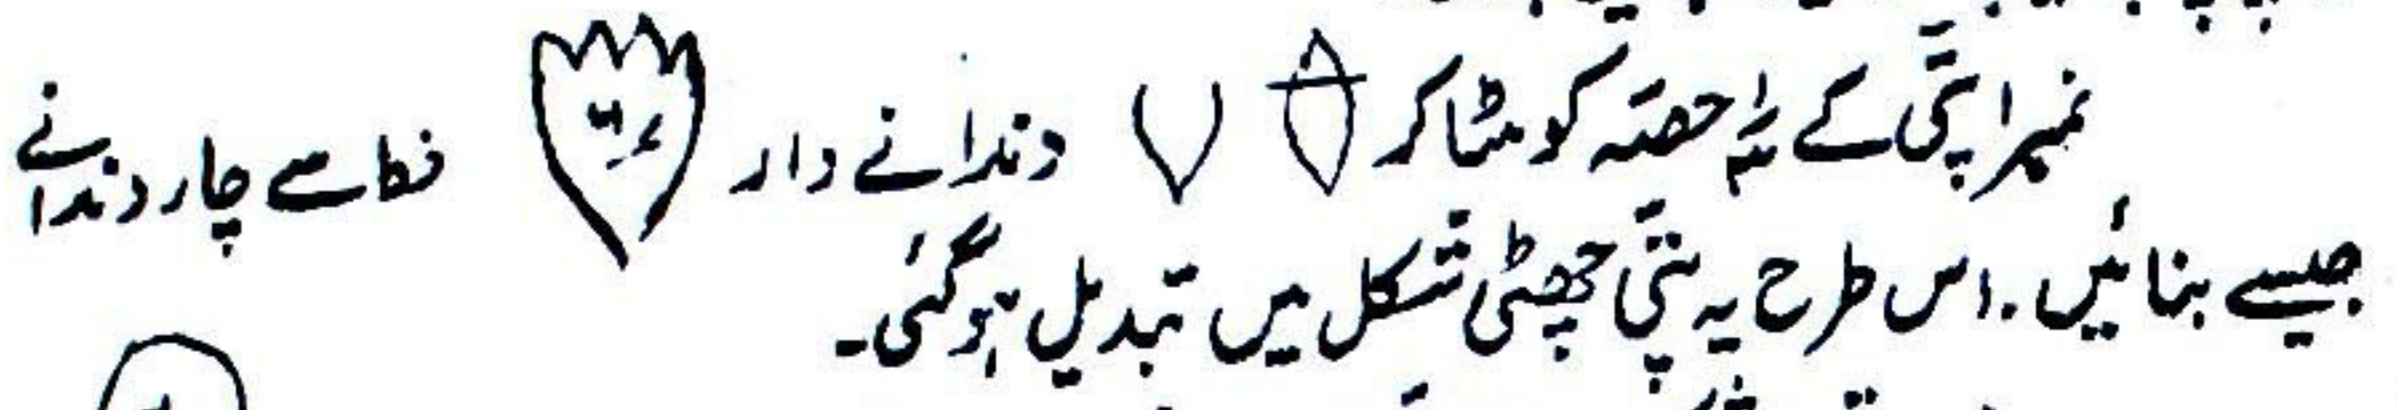 نمبر ا پتّی کے ¼ حصّہ کو مٹا کر دندانے دار خط سے چار دندانے
جیسے بنائیں. اس طرح یہ پتّی چھٹی شکل میں تبدیل ہوگئی۔